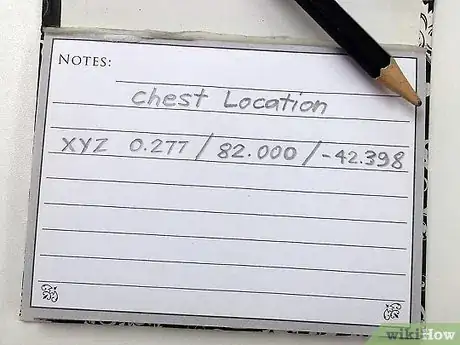 NOTES:
Chest Location
XYZ 0.277 / 82.000 / -42.398
wikiHow